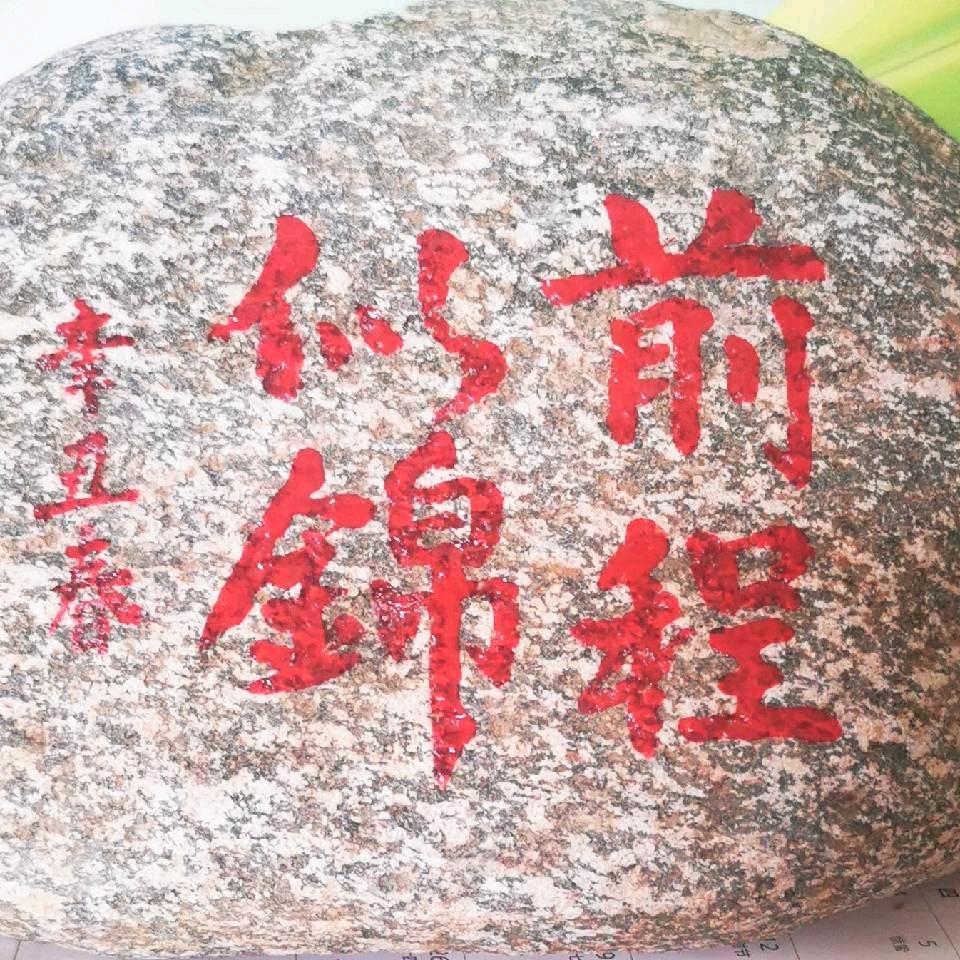 前程
似錦
辛丑春